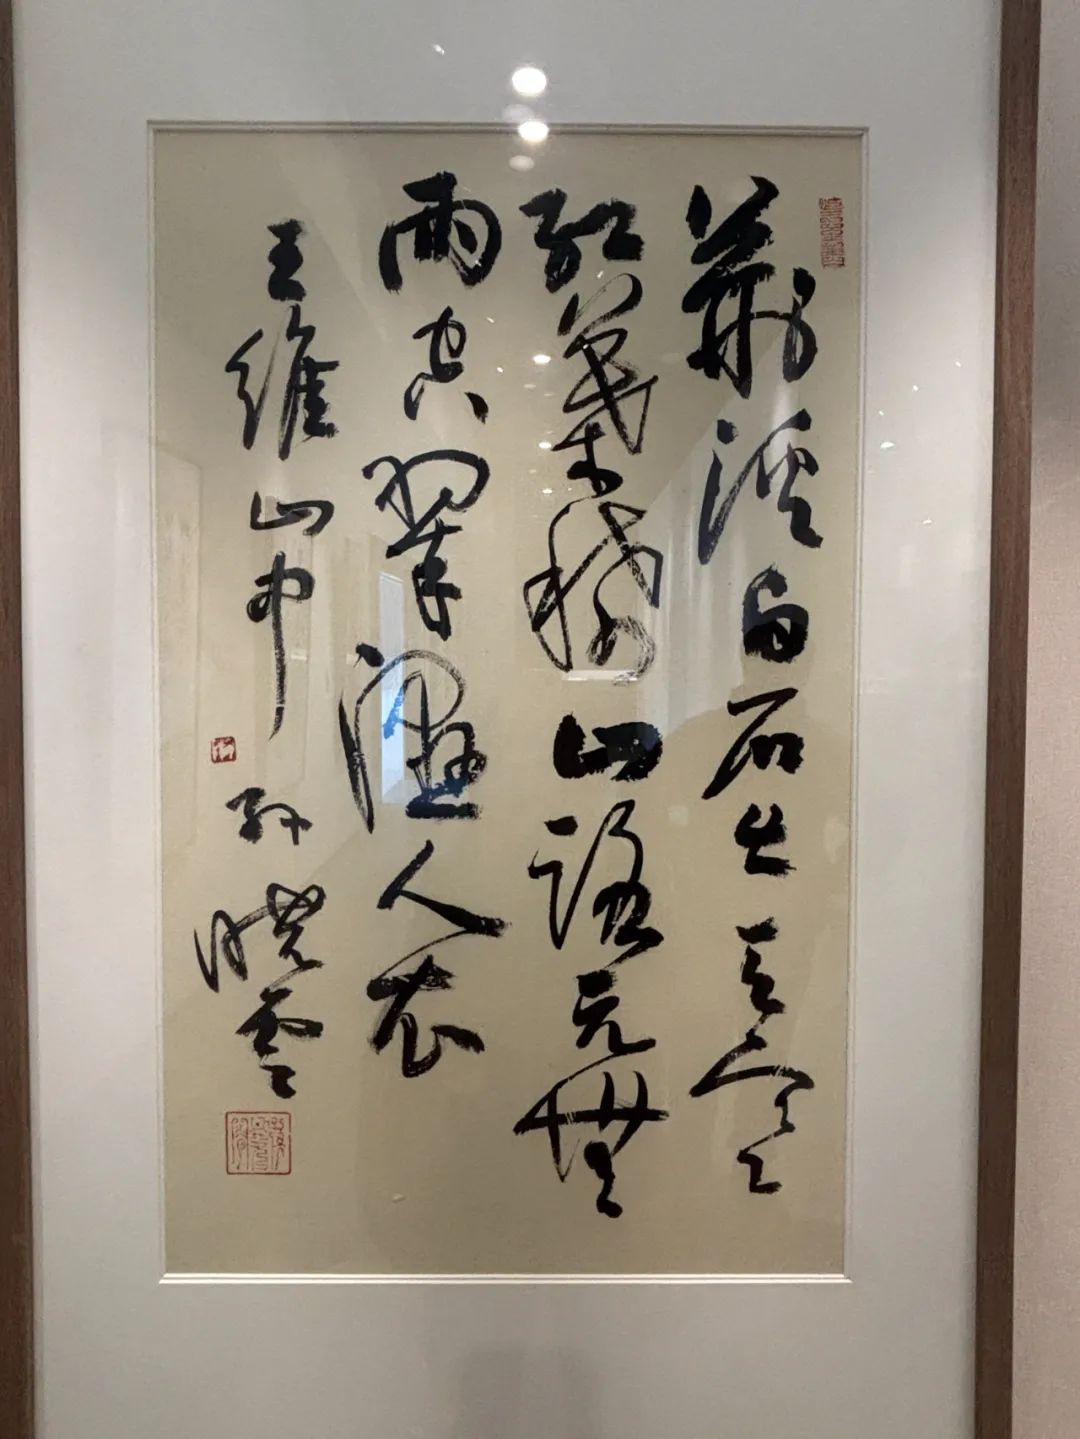 荊溪白石出天寒
紅葉稀山路元無
雨空翠濕人衣
王維山中 孫曉雲